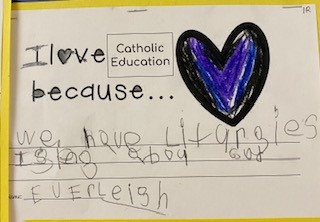 1R
I love
Catholic
Education
because...
we have Liturgies
God
EVERLEIGH